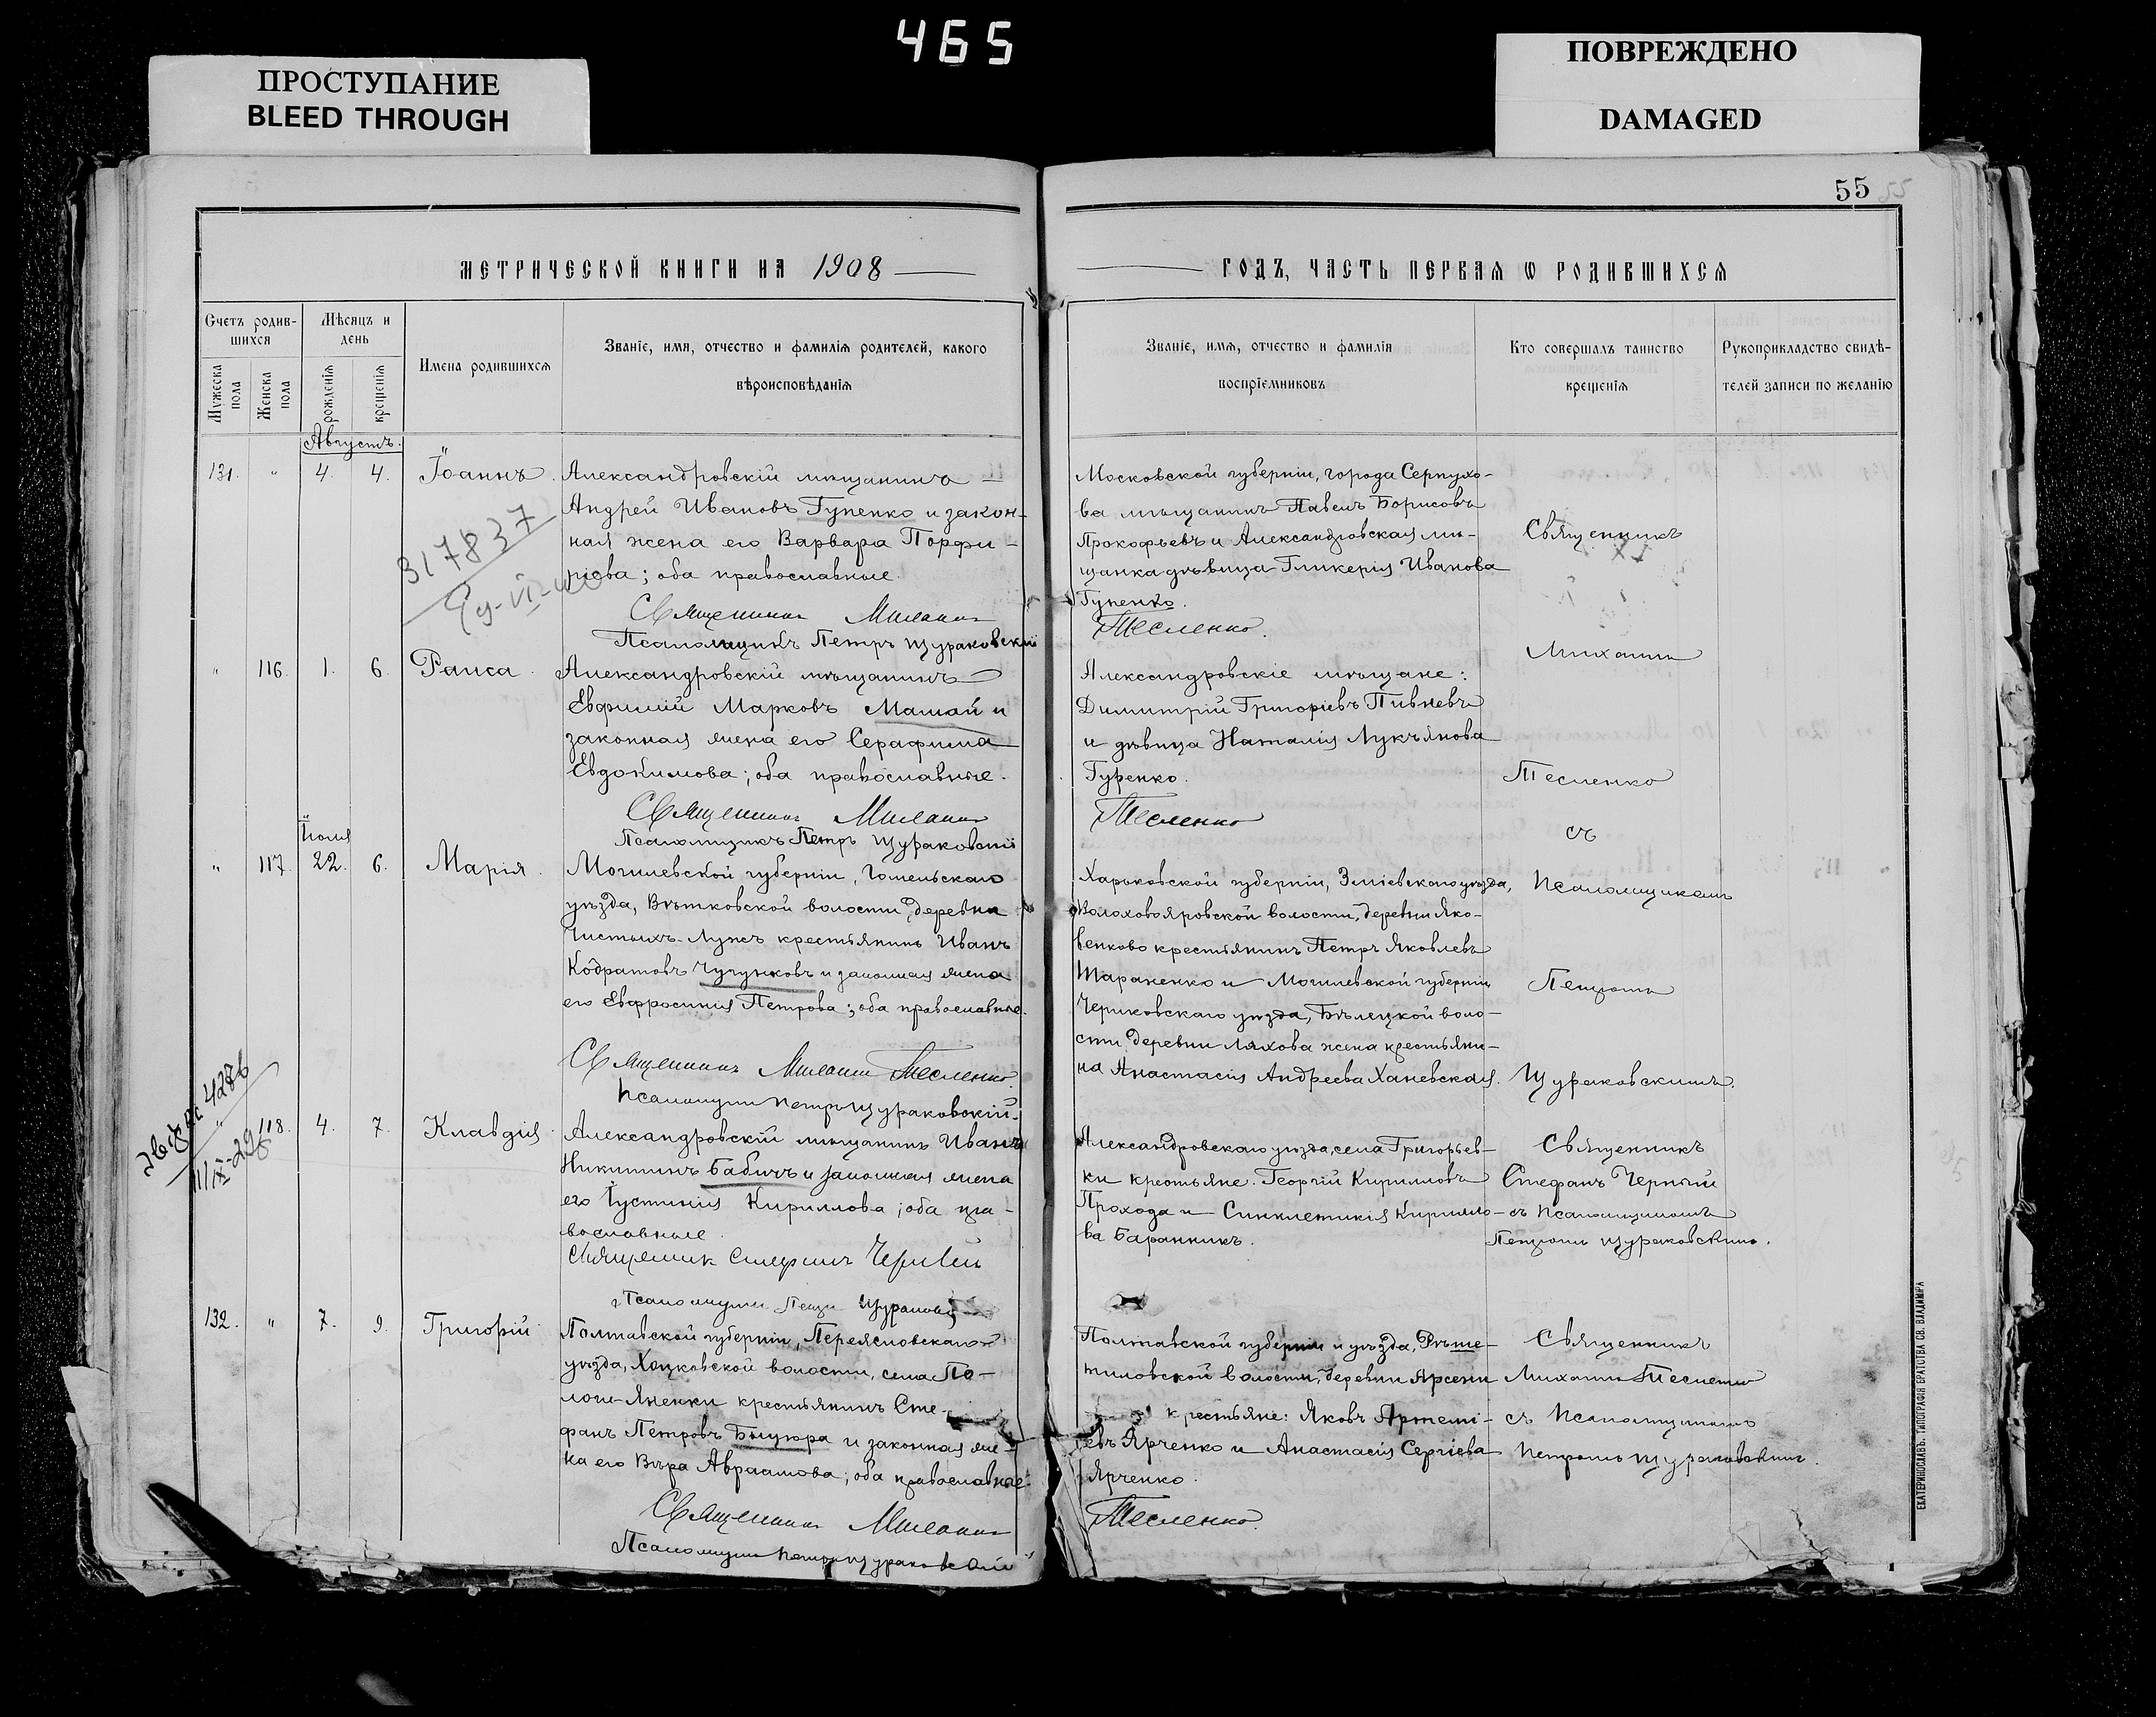 465
ПРОСТУПАНИЕ
BLEED THROUGH
ПОВРЕЖДЕНО
DAMAGED
55
МЕТРИЧЕСКОЙ КНИГИ НА 1908
Счетъ родив-
шихся
Мѣсяцъ и
день
Мужеска
пола
Женска
пола
рожденія
крещенія
Имена родившихся
Званіе, имя, отчество и фамилія родителей, какого
вѣроисповѣданія
Августъ.
131. " 4. 4. Іоаннъ.
Александровскій мѣщанинъ
Андрей Ивановъ Гупенко и закон-
ная жена его Варвара Порфи-
ріева; оба православные.
317837
Священникъ Михаилъ
Псаломщикъ Петръ Щураковскій
" 116. 1. 6. Раиса.
Александровскій мѣщанинъ
Евфимій Марковъ Мамай и
законная жена его Серафима
Евдокимова; оба православные.
Священникъ Михаилъ
Псаломщикъ Петръ Щураковскій
Іюля
" 117. 22. 6. Марія.
Могилевской губерніи, Гомельскаго
уѣзда, Вѣтковской волости, деревни
Чистыхъ-Лужъ крестьянинъ Иванъ
Кодратовъ Чугунковъ и законная жена
его Евфросинія Петрова; оба православные.
Священникъ Михаилъ Тесленко.
Псаломщикъ Петръ Щураковскій.
4276
" 118. 4. 7. Клавдія.
Александровскій мѣщанинъ Иванъ
Никитинъ Бабичъ и законная жена
его Іустинія Кириллова; оба пра-
вославные.
Священник Стефанъ Черный
Псаломщикъ Петръ Щураковскій
132. " 7. 9. Григорій
Полтавской губерніи, Переясловскаго
уѣзда, Хоцковской волости, села По-
логи-Яненки крестьянинъ Сте-
фанъ Петровъ Бицюра и законная же-
на его Вѣра Авраамова; оба православные.
Священникъ Михаилъ
Псаломщикъ Петръ Щураковскій
ГОДЪ, ЧАСТЬ ПЕРВАЯ О РОДИВШИХСЯ
Званіе, имя, отчество и фамилія
воспріемниковъ
Кто совершалъ таинство
крещенія
Рукоприкладство свидѣ-
телей записи по желанію
Московской губерніи, города Серпухо-
ва мѣщанинъ Павелъ Борисовъ
Прокофьевъ и Александровская мѣ-
щанка дѣвица Гликерія Иванова
Гупенко.
Тесленко.
Александровскіе мѣщане:
Димитрій Григоріевъ Пивневъ
и дѣвица Наталія Лукьянова
Гуренко.
Тесленко
Харьковской губерніи, Зміевскаго уѣзда,
Волоховояровской волости, деревни Яко-
венково крестьянинъ Петръ Яковлевъ
Тараненко и Могилевской губерніи
Чериковскаго уѣзда, Бѣлецкой воло-
сти деревни Ляхова жена крестьяни-
на Анастасія Андреева Ханевская.
Священникъ
Михаилъ
Тесленко
съ
Псаломщикомъ
Петромъ
Щураковскимъ.
Александровскаго уѣзда, села Григорьев-
ки крестьяне: Георгій Кирилловъ
Прохода и Синклетикія Кирилло-
ва Баранникъ.
Священникъ
Стефанъ Черный
съ Псаломщикомъ
Петромъ Щураковскимъ.
Полтавской губерніи и уѣзда, Рѣше-
тиловской волости, деревни Арсени
крестьяне: Яковъ Артемі-
евъ Ярченко и Анастасія Сергіева
Ярченко.
Тесленко.
Священникъ
Михаилъ Тесленко
съ Псаломщикомъ
Петромъ Щураковскимъ.
ЕКАТЕРИНОСЛАВЪ. ТИПОГРАФІЯ БРАТСТВА СВ. ВЛАДИМІРА